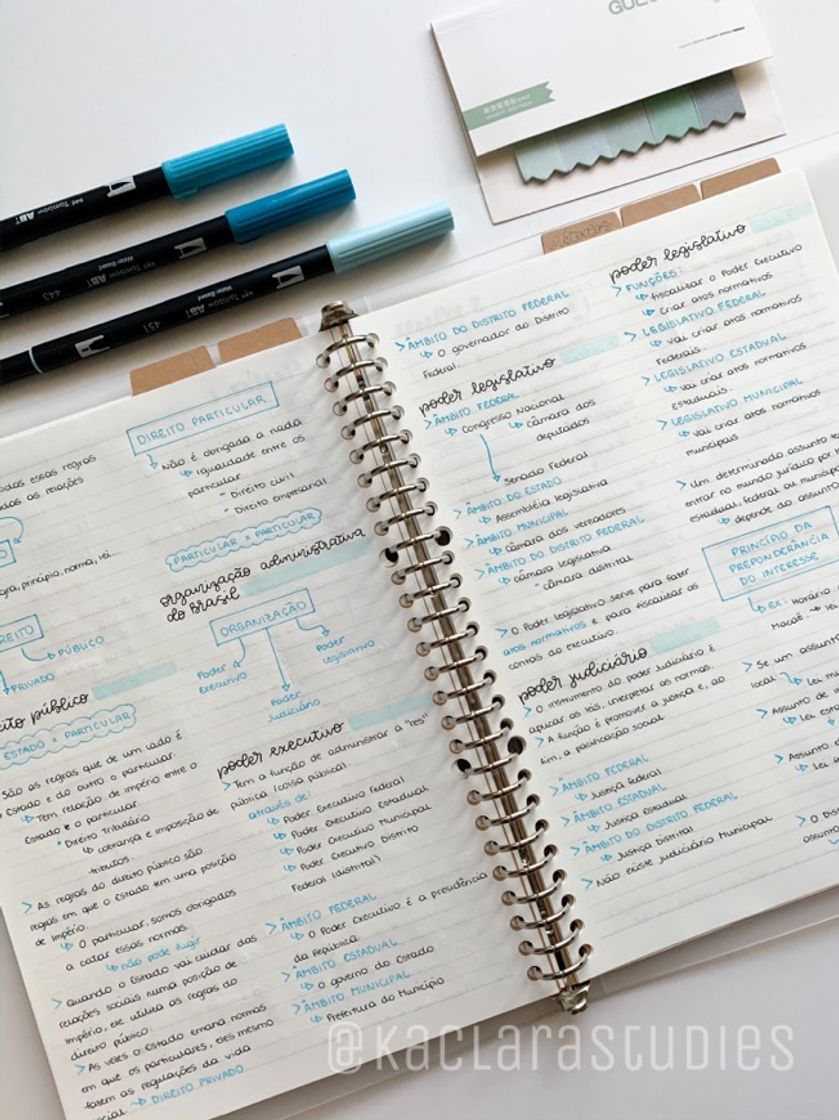 TOMBOW ABT
TOMBOW ABT
Water-Based
443
TOMBOW ABT
Water-Based
451
essas regras
as relações
princípio, norma, lei...
PÚBLICO
PRIVADO
público
ESTADO × PARTICULAR
São as regras que de um lado é
Estado e do outro o particular.
Tem relação de império entre o
Estado e o particular.
Direito Tributário
cobrança e imposição de
tributos.
> As regras do direito público são
regras em que o Estado tem uma posição
de império.
O particular, somos obrigados
a catar essas normas
não pode fugir
> Quando o Estado vai cuidar das
relações sociais numa posição de
império, ele utiliza as regras do
direito público.
> Às vezes o Estado emana normas
em que os particulares, eles mesmo
fazem as regulações da vida
social. → DIREITO PRIVADO
DIREITO PARTICULAR
Não é obrigada a nada
Igualdade entre os
particular.
- Direito civil
- Direito empresarial
PARTICULAR × PARTICULAR
organização administrativa
do Brasil
ORGANIZAÇÃO
Poder
Executivo
Poder
Judiciário
Poder
Legislativo
poder executivo
> Tem a função de administrar a "res"
pública (coisa pública).
através de:
Poder Executivo Federal
Poder Executivo Estadual
Poder Executivo Municipal
Poder Executivo Distrito
Federal (distrital)
> ÂMBITO FEDERAL
O Poder Executivo é a presidência
da República.
> ÂMBITO ESTADUAL
O governo do Estado
> ÂMBITO MUNICIPAL
Prefeitura do Município
> ÂMBITO DO DISTRITO FEDERAL
O governador do Distrito
Federal.
poder legislativo
> ÂMBITO FEDERAL
Congresso Nacional
Câmara dos
deputados
Senado Federal
> ÂMBITO DO ESTADO
Assembléia legislativa
> ÂMBITO MUNICIPAL
Câmara dos vereadores
> ÂMBITO DO DISTRITO FEDERAL
Câmara legislativa
- Câmara distrital
> O Poder legislativo serve para fazer
atos normativos e para fiscalizar as
contas do executivo.
poder judiciário
> O instrumento do poder Judiciário é
aplicar as leis, interpretar as normas.
> A função é promover a justiça e, ao
fim, a pacificação social
> ÂMBITO FEDERAL
Justiça Federal
> ÂMBITO ESTADUAL
Justiça Estadual
> ÂMBITO DO DISTRITO FEDERAL
Justiça Distrital
> Não existe judiciário Municipal
poder legislativo
> FUNÇÕES:
fiscalizar o Poder Executivo
Criar atos normativos
> LEGISLATIVO FEDERAL
Vai criar atos normativos
Federais.
> LEGISLATIVO ESTADUAL
vai criar atos normativos
estaduais.
> LEGISLATIVO MUNICIPAL
vai criar atos normativos
municipais
> Um determinado assunto
entrar no mundo jurídico por
estadual, federal ou
depende do
PRINCÍPIO DA
PREPONDERÂNCIA
DO INTERESSE
ex: Horário
Macaé
> Se um
local
> Assunto de
> Assunto
> O
@KACLARASTUDIES